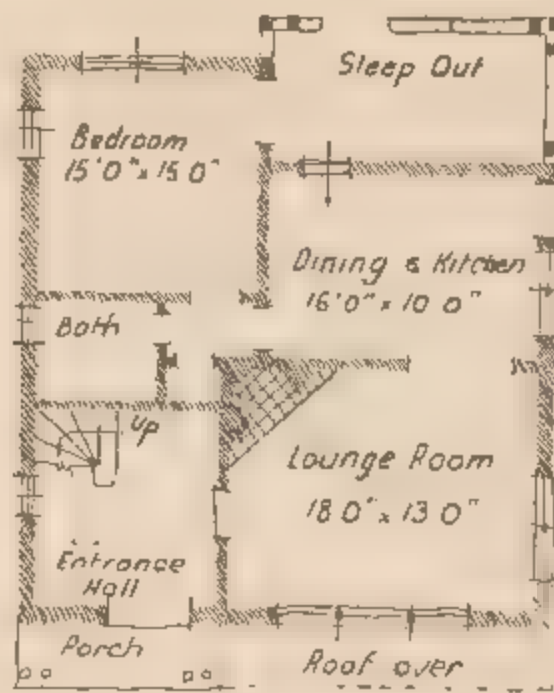 Sleep Out
Bedroom
15'0" x 15 0"
Dining & Kitchen
16'0" x 10 0"
Bath
Up
Lounge Room
18 0" x 13 0"
Entrance
Hall
Porch
Roof over